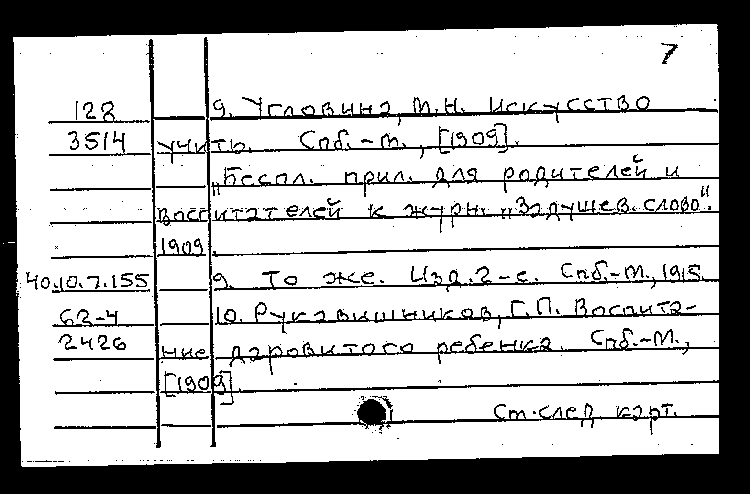 7
128 9. Угловина, М.Н. Искусство
3514 учить. Спб.-М., [1909].
„Беспл. прил. для родителей и
воспитателей к журн. „Задушев. слово".
1909.
40.10.7.155 9. То же. Изд. 2-е. Спб.-М., 1915.
62-4 10. Рукавишников, Г.П. Воспита-
2426 ние даровитого ребенка. Спб.-М.,
[1909].
См. след карт.